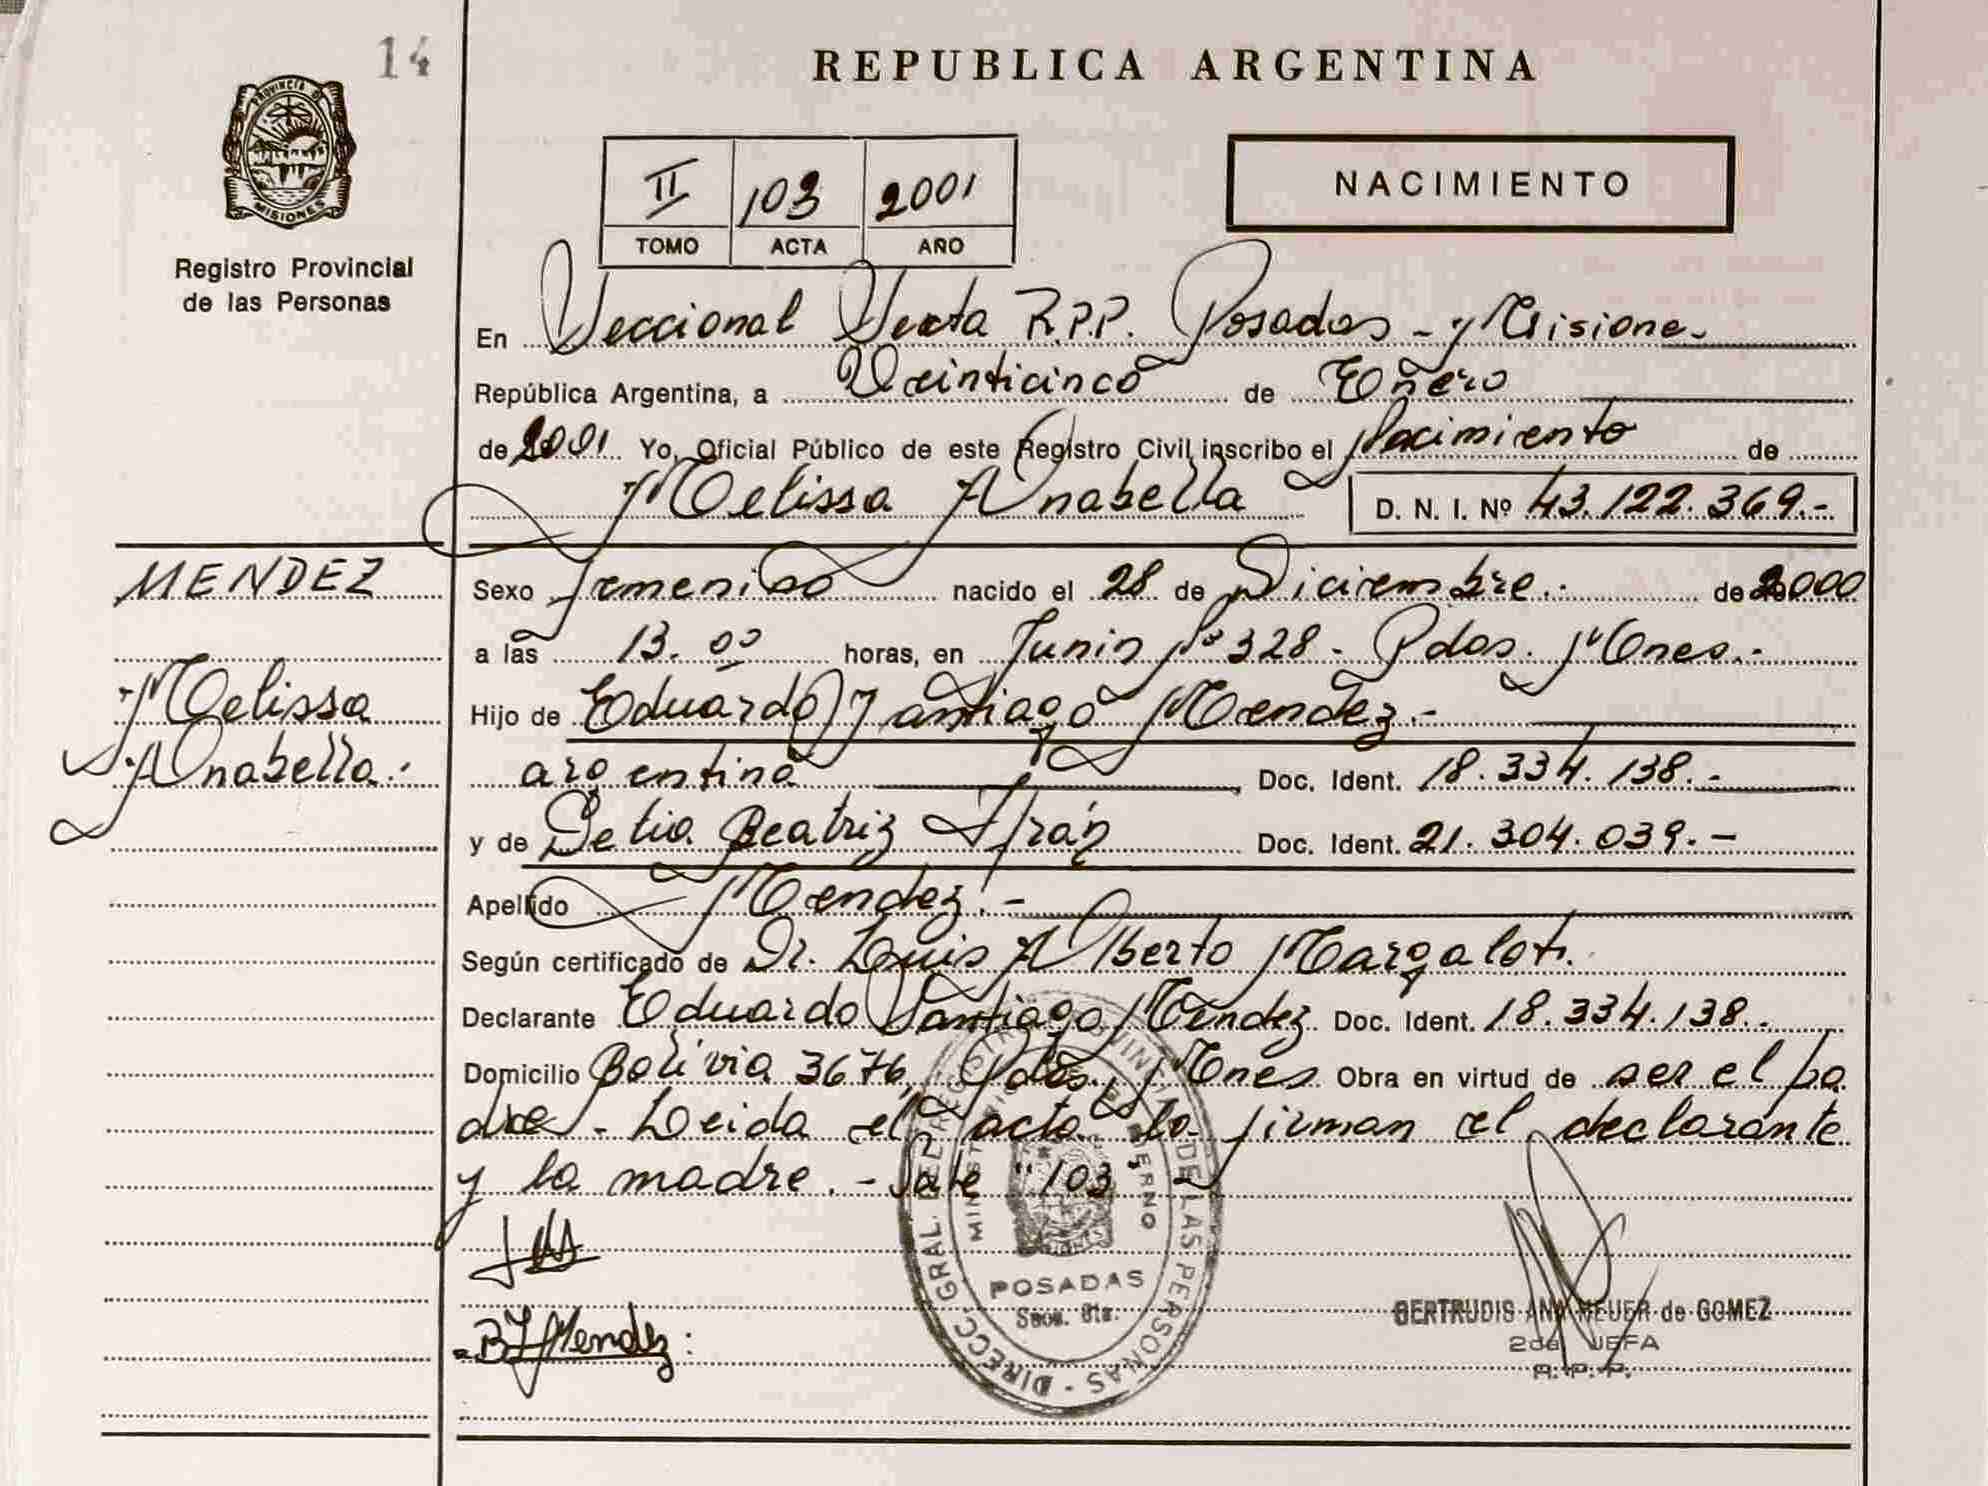 14
REPUBLICA ARGENTINA
PROVINCIA DE
MISIONES
Registro Provincial
de las Personas
II 103 2001
TOMO ACTA AÑO
NACIMIENTO
En Seccional Sexta R.P.P. Posadas - Misiones
República Argentina, a Veinticinco de Enero
de 2001 Yo, Oficial Público de este Registro Civil inscribo el Nacimiento de
Melissa Anabella D. N. I. Nº 43.122.369.-
MENDEZ
Melissa
Anabella.
Sexo femenino nacido el 28 de Diciembre. de 2000
a las 13.00 horas, en Junin Nº 328 - Pdas. Mnes.-
Hijo de Eduardo Santiago Mendez.-
argentina Doc. Ident. 18.334.138.-
y de Delia Beatriz Doc. Ident. 21.304.039.-
Apellido Mendez.-
Según certificado de Dr. Luis Alberto Margalot.
Declarante Eduardo Santiago Mendez. Doc. Ident. 18.334.138.-
Domicilio Bolivia 3676, Pdas., Mnes Obra en virtud de ser el pa
dre. - Leida el acta la firman el declarante
y la madre. - Vale "103"
DIRECC. GRAL. DE REGISTRO PROVINCIAL DE LAS PERSONAS -
MINISTERIO DE GOBIERNO
POSADAS
Secc. 6ta.
B Mendez
GERTRUDIS ANA NEUER de GOMEZ
2da JEFA
R. P. P.